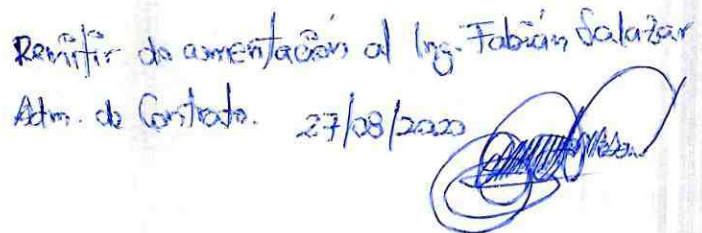 Remitir documentación al Ing. Fabián Salazar
Adm. de Contrato. 27/08/2020